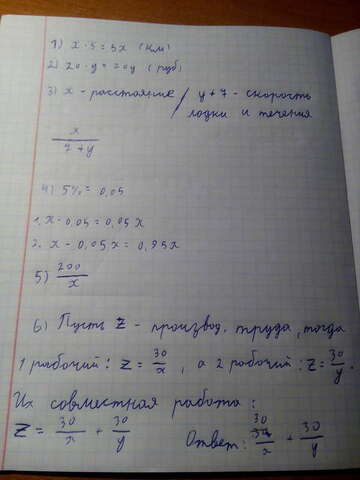 1) x · 5 = 5x (км)
2) 20 · y = 20y (руб)
3) x - расстояние / y + 7 - скорость
лодки и течения
x
7 + y
4) 5% = 0,05
1. x · 0,05 = 0,05x
2. x - 0,05x = 0,95x
5) 200
x
6) Пусть z - производ. труда, тогда
1 рабочий: z = 30/x, а 2 рабочий: z = 30/y.
Их совместная работа:
z = 30/x + 30/y Ответ: 30/x + 30/y